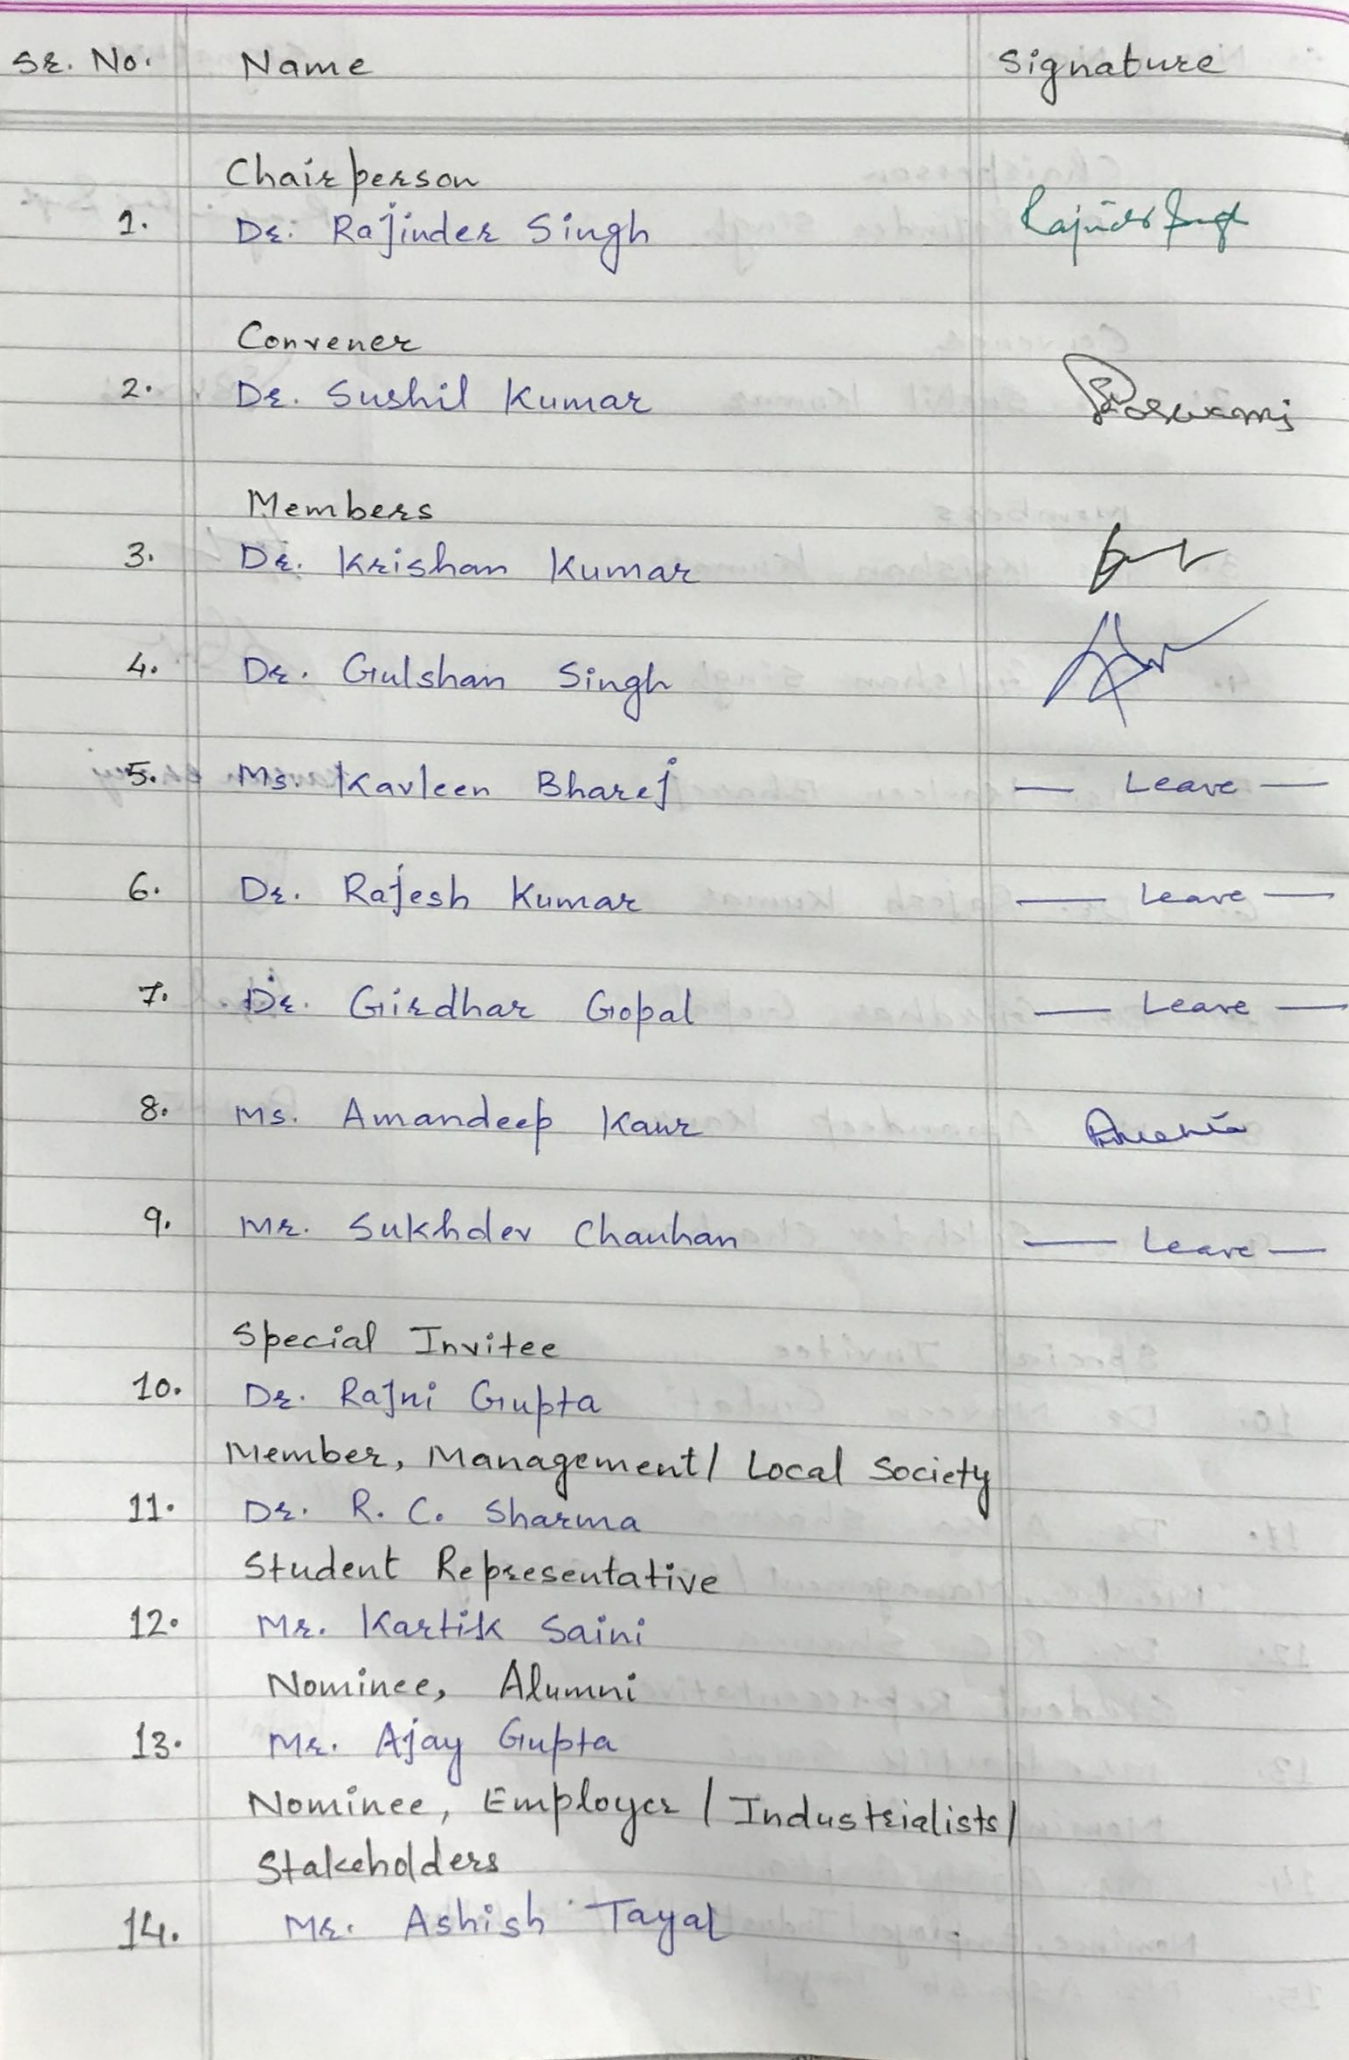 Sr. No. Name Signature
Chairperson
1. Dr. Rajinder Singh Rajinder Singh
Convener
2. Dr. Sushil Kumar
Members
3. Dr. Krishan Kumar
4. Dr. Gulshan Singh
5. Ms. Kavleen Bharej — Leave —
6. Dr. Rajesh Kumar — Leave —
7. Dr. Girdhar Gopal — Leave —
8. Ms. Amandeep Kaur
9. Mr. Sukhdev Chauhan — Leave —
Special Invitee
10. Dr. Rajni Gupta
Member, Management/ Local Society
11. Dr. R. C. Sharma
Student Representative
12. Mr. Kartik Saini
Nominee, Alumni
13. Mr. Ajay Gupta
Nominee, Employer / Industrialists/
Stakeholders
14. Mr. Ashish Tayal